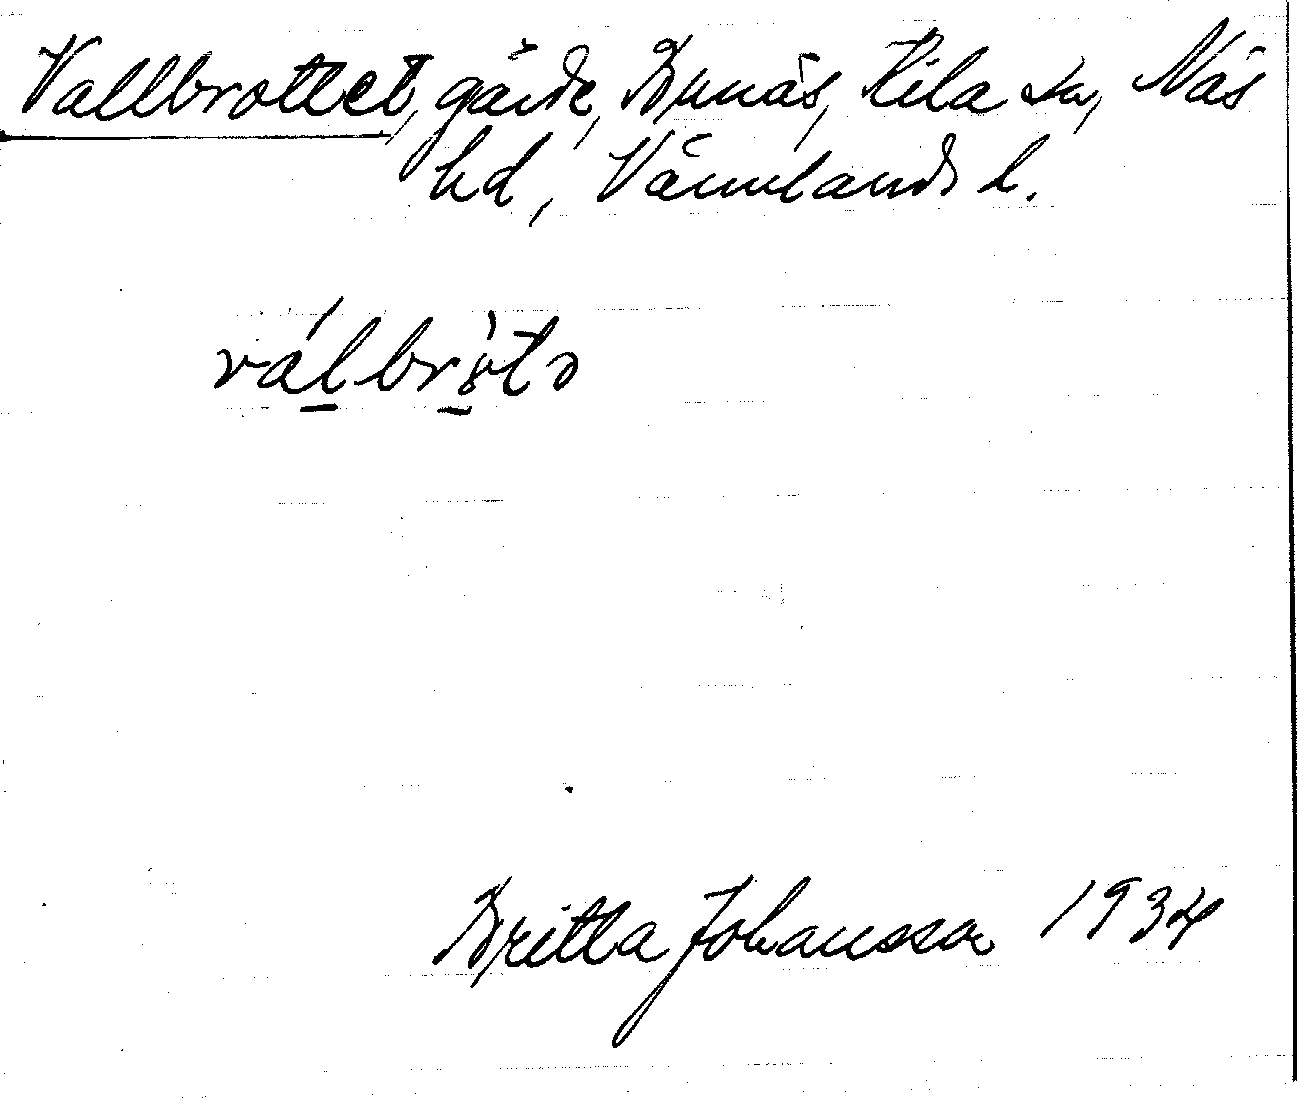 Vallbrottet, gärde, Bynäs, Kila sn, Näs
hd, Värmlands l.
válbròtə
Britta Johansson 1934